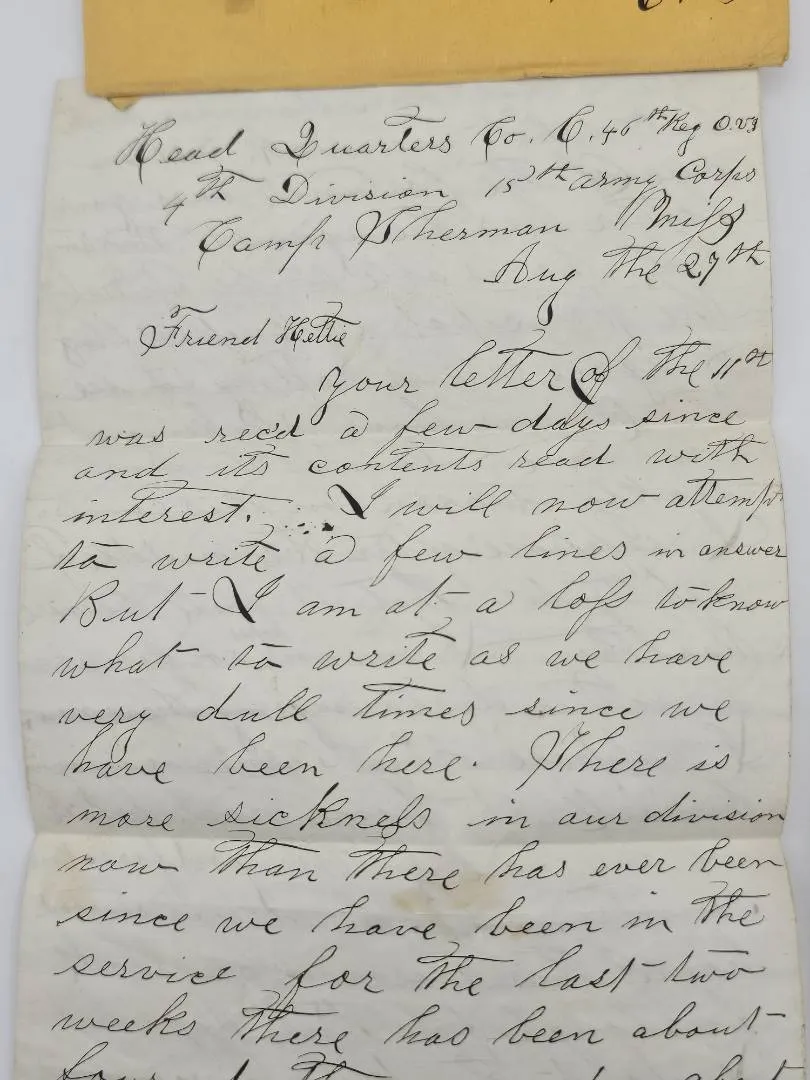 Head Quarters Co. C. 46th Reg O.V.I
4th Division 15th army Corps
Camp Sherman Miss
Aug the 27th
Friend Hettie
your letter of the 11th
was recd a few days since
and its contents read with
interest. I will now attempt
to write a few lines in answer
But I am at a loss to know
what to write as we have
very dull times since we
have been here. There is
more sickness in our division
now than there has ever been
since we have been in the
service for the last two
weeks there has been about